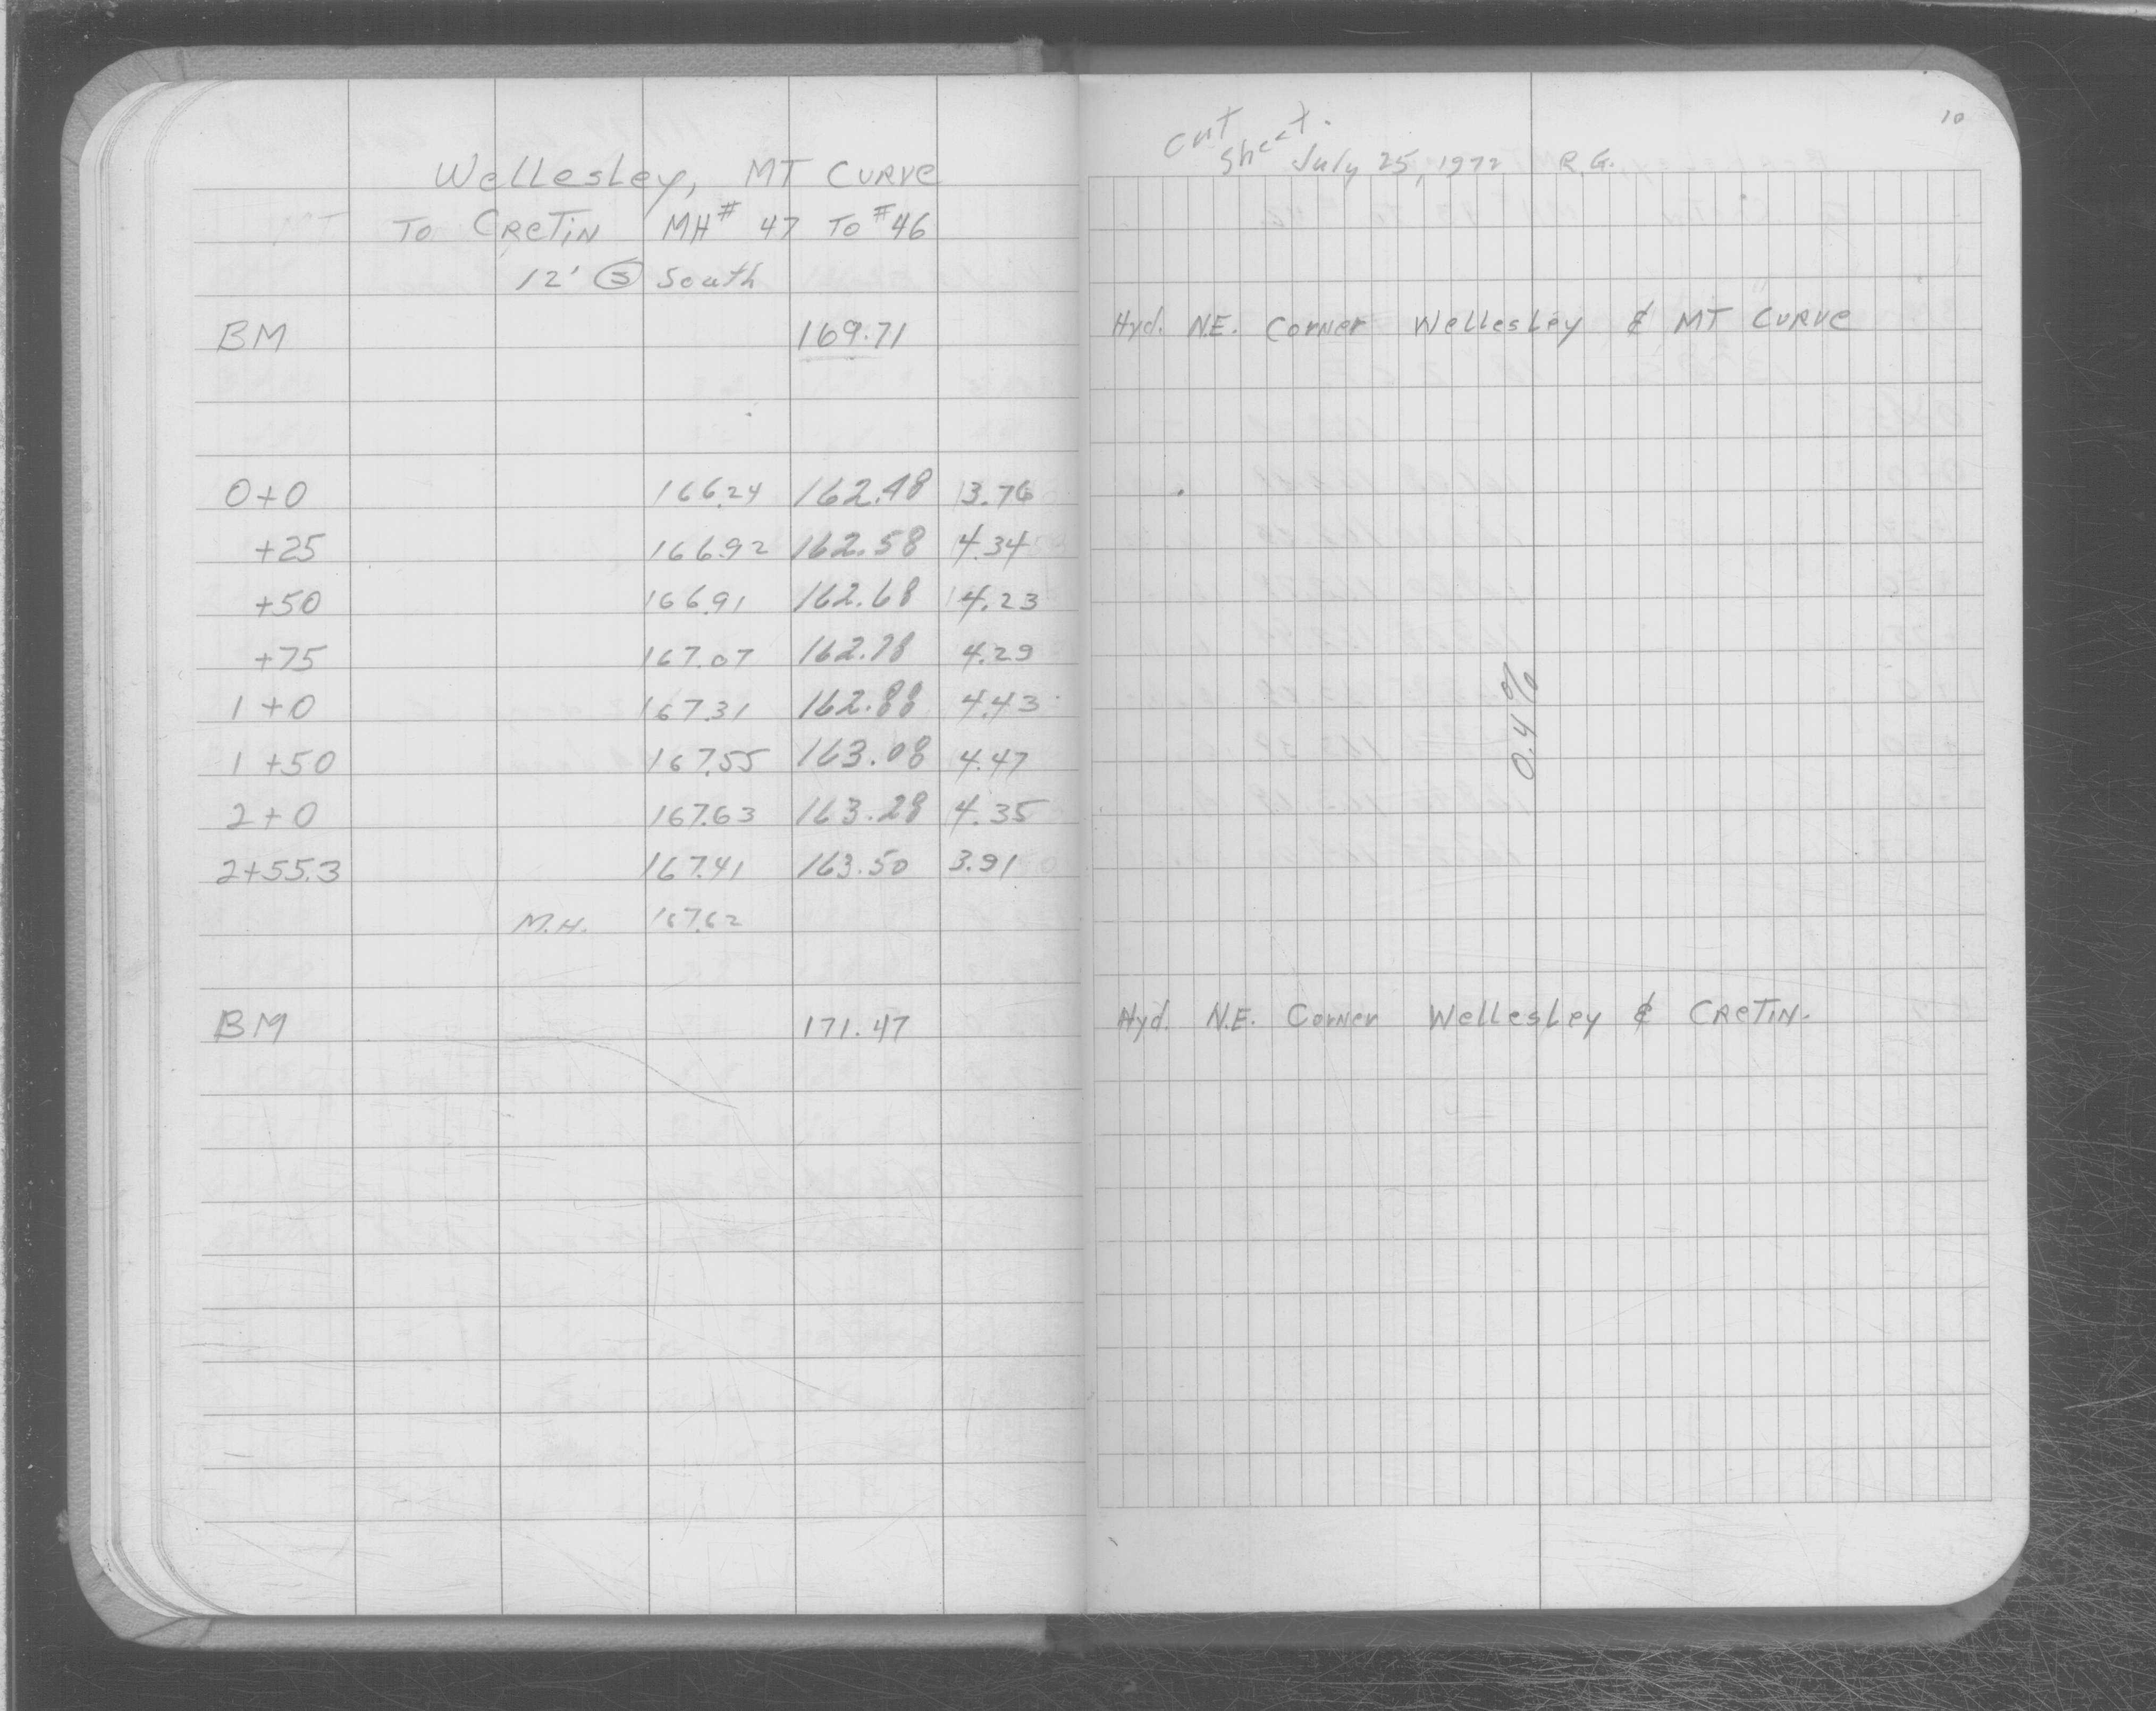 Wellesley, MT CURVE
TO CRETIN MH# 47 TO #46
12' Ⓢ South
BM 169.71
0+0 166.24 162.48 3.76
+25 166.92 162.58 4.34
+50 166.91 162.68 4.23
+75 167.07 162.78 4.29
1+0 167.31 162.88 4.43
1+50 167.55 163.08 4.47
2+0 167.63 163.28 4.35
2+55.3 167.41 163.50 3.91
M.H. 167.62
BM 171.47
10
Cut
Sheet. July 25, 1972 R.G.
Hyd. N.E. Corner Wellesley & MT CURVE
0.4%
Hyd. N.E. Corner Wellesley & CRETIN.